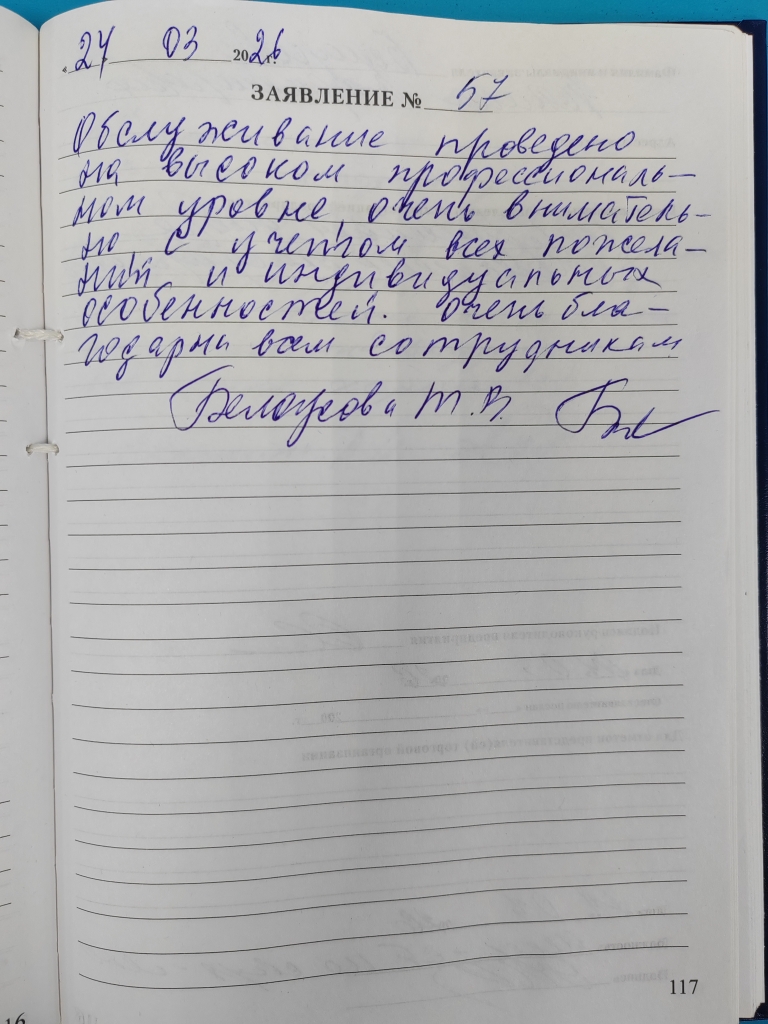 « 24 03 2026 г.
ЗАЯВЛЕНИЕ № 57
Обслуживание проведено
на высоком профессиональ-
ном уровне, очень вниматель-
но с учетом всех пожела-
ний и индивидуальных
особенностей. Очень бла-
годарна всем сотрудникам
Белоусова Т. В.
117
16